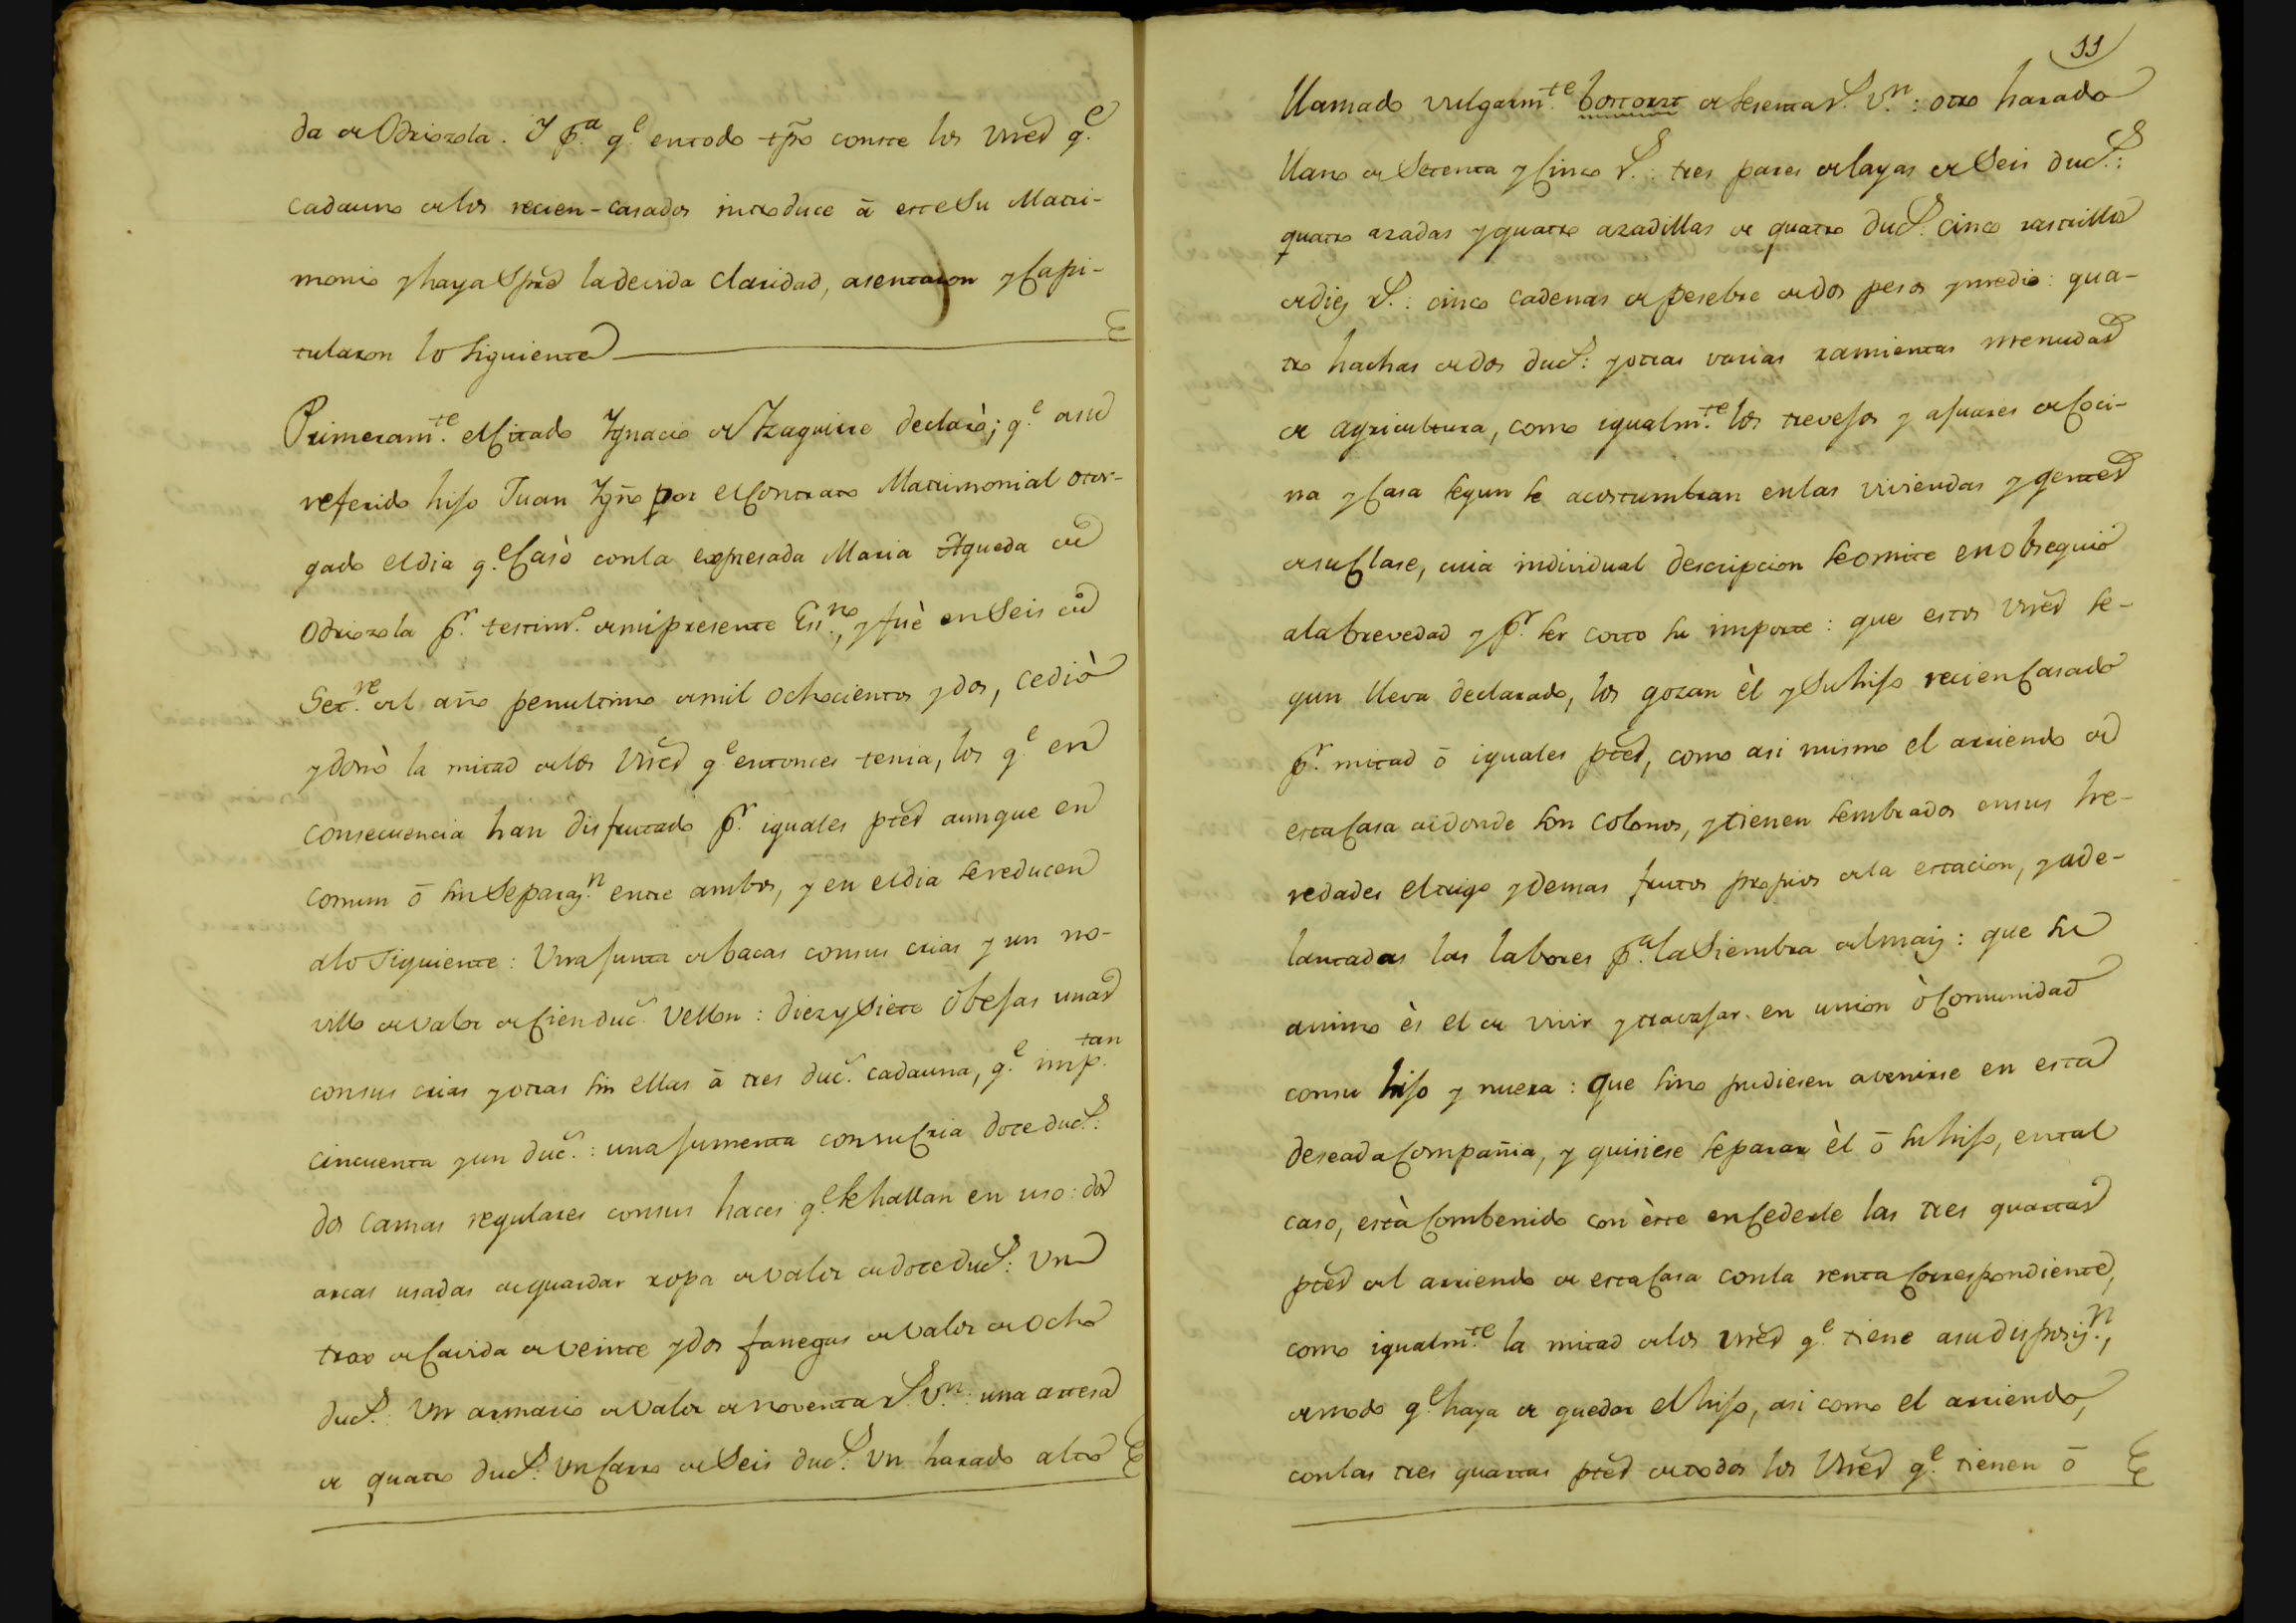 da de Odriozola. Y p.ª q.e en todo tpo conste los Vnes q.e
cada uno de los recien-casados introduce á este su Matri-
monio y haya spre la devida claridad, asentaron y Capi-
tularon lo siguiente
Primeram.te el Citado Ygnacio de Yzaguirre declarò; q.e a su
referido hijo Juan Ygn.o por el Contrato Matrimonial otor-
gado el dia q.e Casò con la expresada Maria Agueda de
Odriozola p.r testim.o de mi presente Es.no, y fuè en Seis de
Set.re del año penultimo de mil ochocientos y dos, cediò
y donò la mitad de los Vnes q.e entonces tenia, los q.e en
consecuencia han disfrutado p.r iguales ptes aunque en
comun ó sin Separaz.n entre ambos, y en el dia se reducen
a lo siguiente: Una junta de bacas con sus crias y un no-
villo de valor de Cien duc.s Vellon: diez y Siete óbejas unas
con sus crias y otras sin ellas á tres duc.s cada una, q.e imp.tan
cincuenta y un duc.s: una jumenta con su Cria doce duc.s:
dos camas regulares con sus haces q.e se hallan en uso: dos
arcas usadas de guardar ropa de valor de doce duc.s: Un
trox de Cavida de veinte y dos fanegas de valor de ocho
duc.s: Un armario de valor de noventa r.s V.n: una artesa
de quatro duc.s: Un Carro de Seis duc.s: Un harado alto
11
llamado vulgarm.te bostortz de sesenta r.s v.n: otro harado
llano de Setenta y Cinco r.s: tres pares de layas de Seis duc.s:
quatro azadas y quatro azadillas de quatro duc.s: cinco rastrillos
de diez r.s: cinco cadenas de pesebre de dos pesos y medio: qua-
tro hachas de dos duc.s: y otras varias ramientas menudas
de agricultura, como igualm.te los trevejos y ajuares de Coci-
na y Casa segun se acostumbran en las viviendas y gentes
de su Clase, cuia individual descripcion se omite en obsequio
a la brevedad y p.r ser corto su importe: que estos Vnes se-
gun lleva declarado, los gozan èl y Su hijo recien Casado
p.r mitad ó iguales ptes, como asi mismo el arriendo de
esta Casa de donde son colonos, y tienen sembrados en sus he-
redades el trigo y demas frutos propios de la estacion, y ade-
lantadas las labores p.ª la Siembra del maiz: que su
animo ès el de vivir y travajar en union ò Comunidad
con su hijo y nuera: que si no pudiesen avenirse en esta
deseada Compañia, y quisiese separar èl ó su hijo, en tal
caso, està Combenido con èste en Cederle las tres quartas
ptes del arriendo de esta Casa con la renta Correspondiente,
como igualm.te la mitad de los Vnes q.e tiene a su disposiz.n,
de modo q.e haya de quedar el hijo, asi como el arriendo,
con las tres quartas ptes de todos los Vnes q.e tienen ó